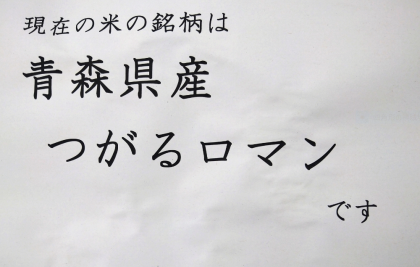 現在の米の銘柄は
青森県産
つがるロマン
です